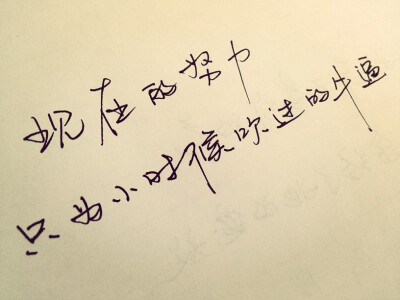 现在的努力
只为小时候吹过的牛逼